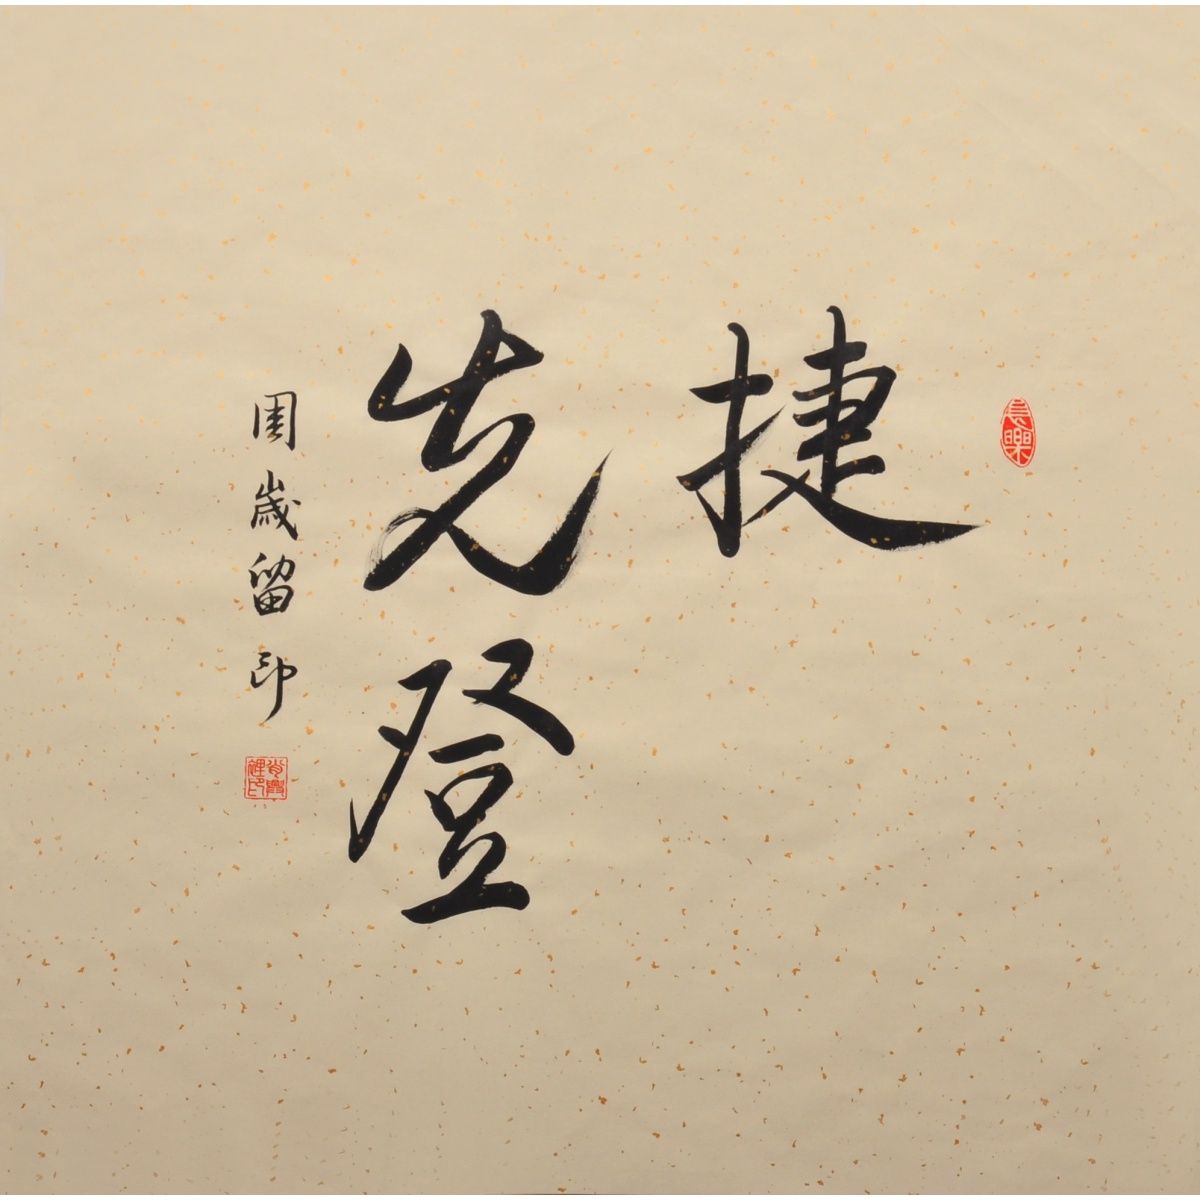 長樂
捷
先登
周歲留印